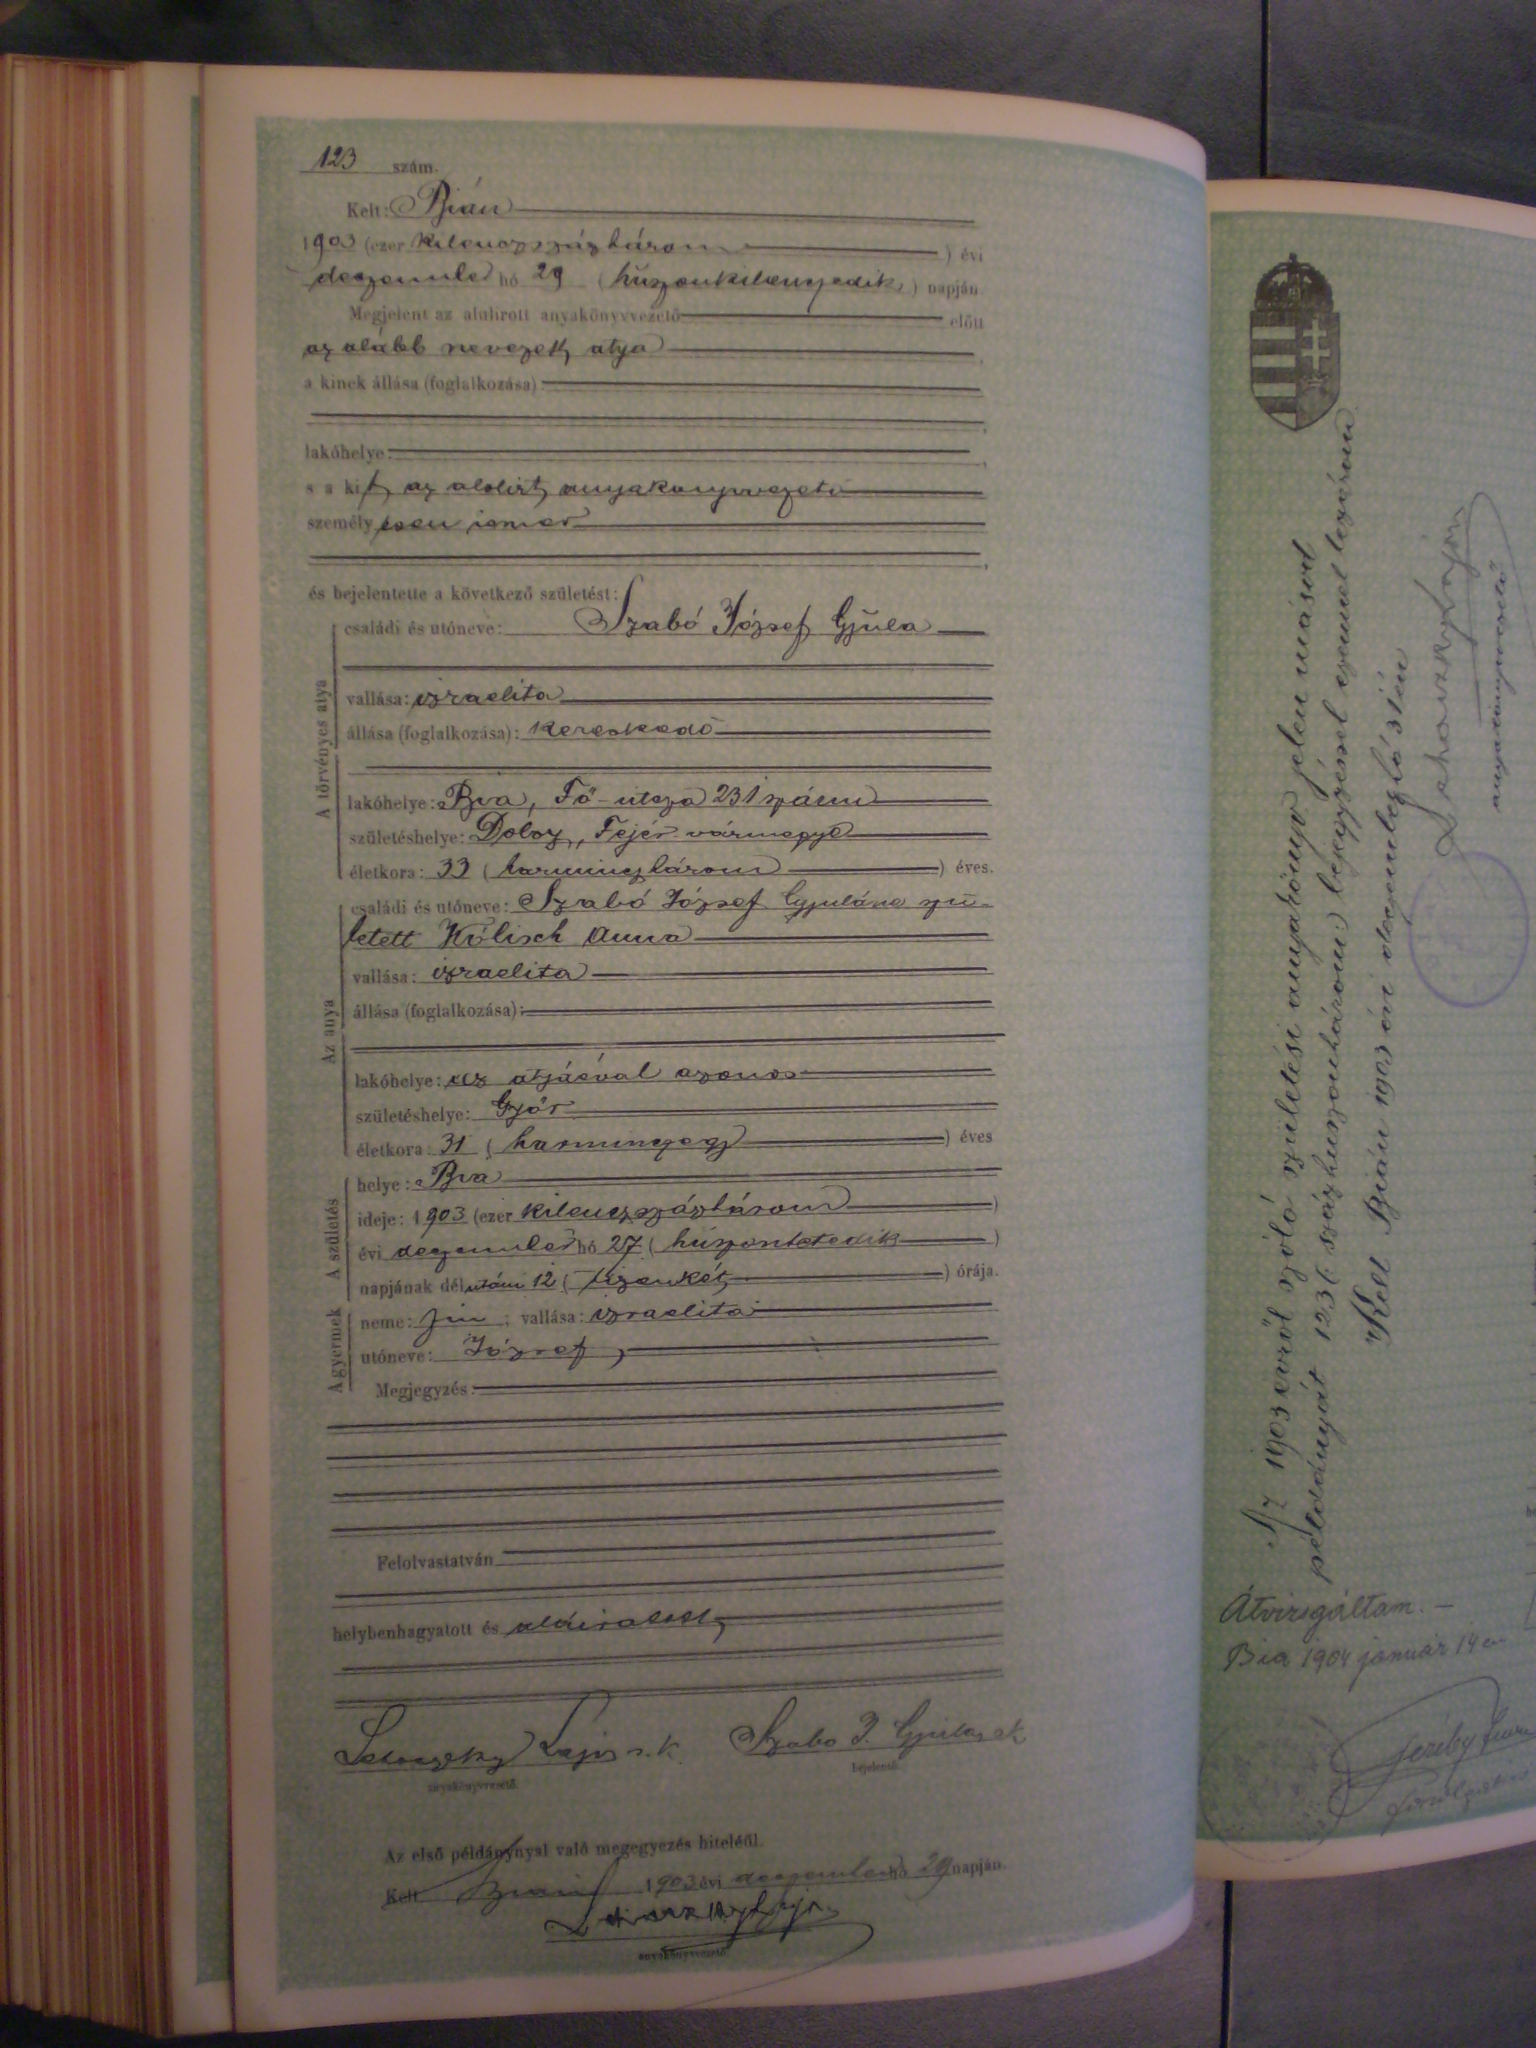 123 szám.
Kelt: Bián
1903 (ezer kilenczszázhárom) évi
deczember hó 29 (huszonkilenczedik) napján
Megjelent az alulirott anyakönyvvezető előtt
az alább nevezett atya
a kinek állása (foglalkozása)
lakóhelye
s a kit az alolirt anyakönyvvezető
személyesen ismer
és bejelentette a következő születést:
A törvényes atya
családi és utóneve: Szabó József Gyula
vallása: izraelita
állása (foglalkozása): kereskedő
lakóhelye: Bia, Fő-utcza 231 szám
születéshelye: Doboz, Fejér vármegye
életkora: 33 (harminczhárom) éves.
Az anya
családi és utóneve: Szabó József Gyuláné szü-
letett Kőlisch Anna
vallása: izraelita
állása (foglalkozása):
lakóhelye: az atyáéval azonos
születéshelye: Győr
életkora: 31 (harminczegy) éves
A születés
helye: Bia
ideje: 1903 (ezer kilenczszázhárom)
évi deczember hó 27 (huszonhetedik)
napjának délutáni 12 (tizenkét) órája.
A gyermek
neme: fiu; vallása: izraelita
utóneve: József,
Megjegyzés:
Felolvastatván
helybenhagyatott és aláiratott
Lajos s.k. Szabó J. Gyula s.k.
anyakönyvvezető. bejelentő.
Az első példánynyal való megegyezés hiteléül.
Kelt Bián 1903 évi deczember hó 29 napján.
anyakönyvvezető.
Az 1903 évről szóló születési anyakönyv jelen másod
példányát 123 (: százhuszonhárom:) bejegyzéssel ezennel lezárom
Kelt Bián 1903 évi deczember hó 31 én
anyakönyvvezető
Átvizsgáltam. —
Bia 1904 január 14 én